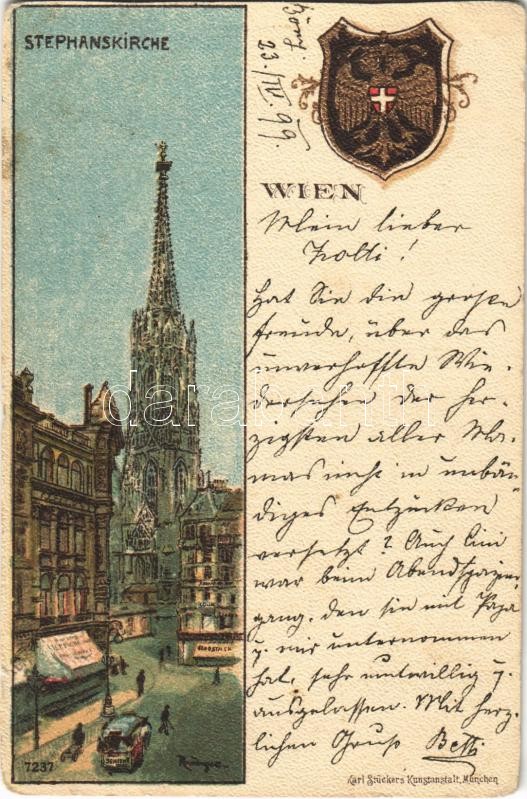 STEPHANSKIRCHE
23./IV. 99.
WIEN
Mein lieber
Zolti!
Hat Sie die große
Freude, über das
unverhoffte Wie-
dersehen der her-
zigsten aller Ma-
mas nicht in unbän-
diges Entzücken
versetzt? Auch Lini
war beim Abendspazier-
gang, den sie mit Papa
u. mir unternommen
hat, sehr mutwillig u.
ausgelassen. Mit herz-
lichen Gruß Betti
7237
Karl Stückers Kunstanstalt, München
darabanth